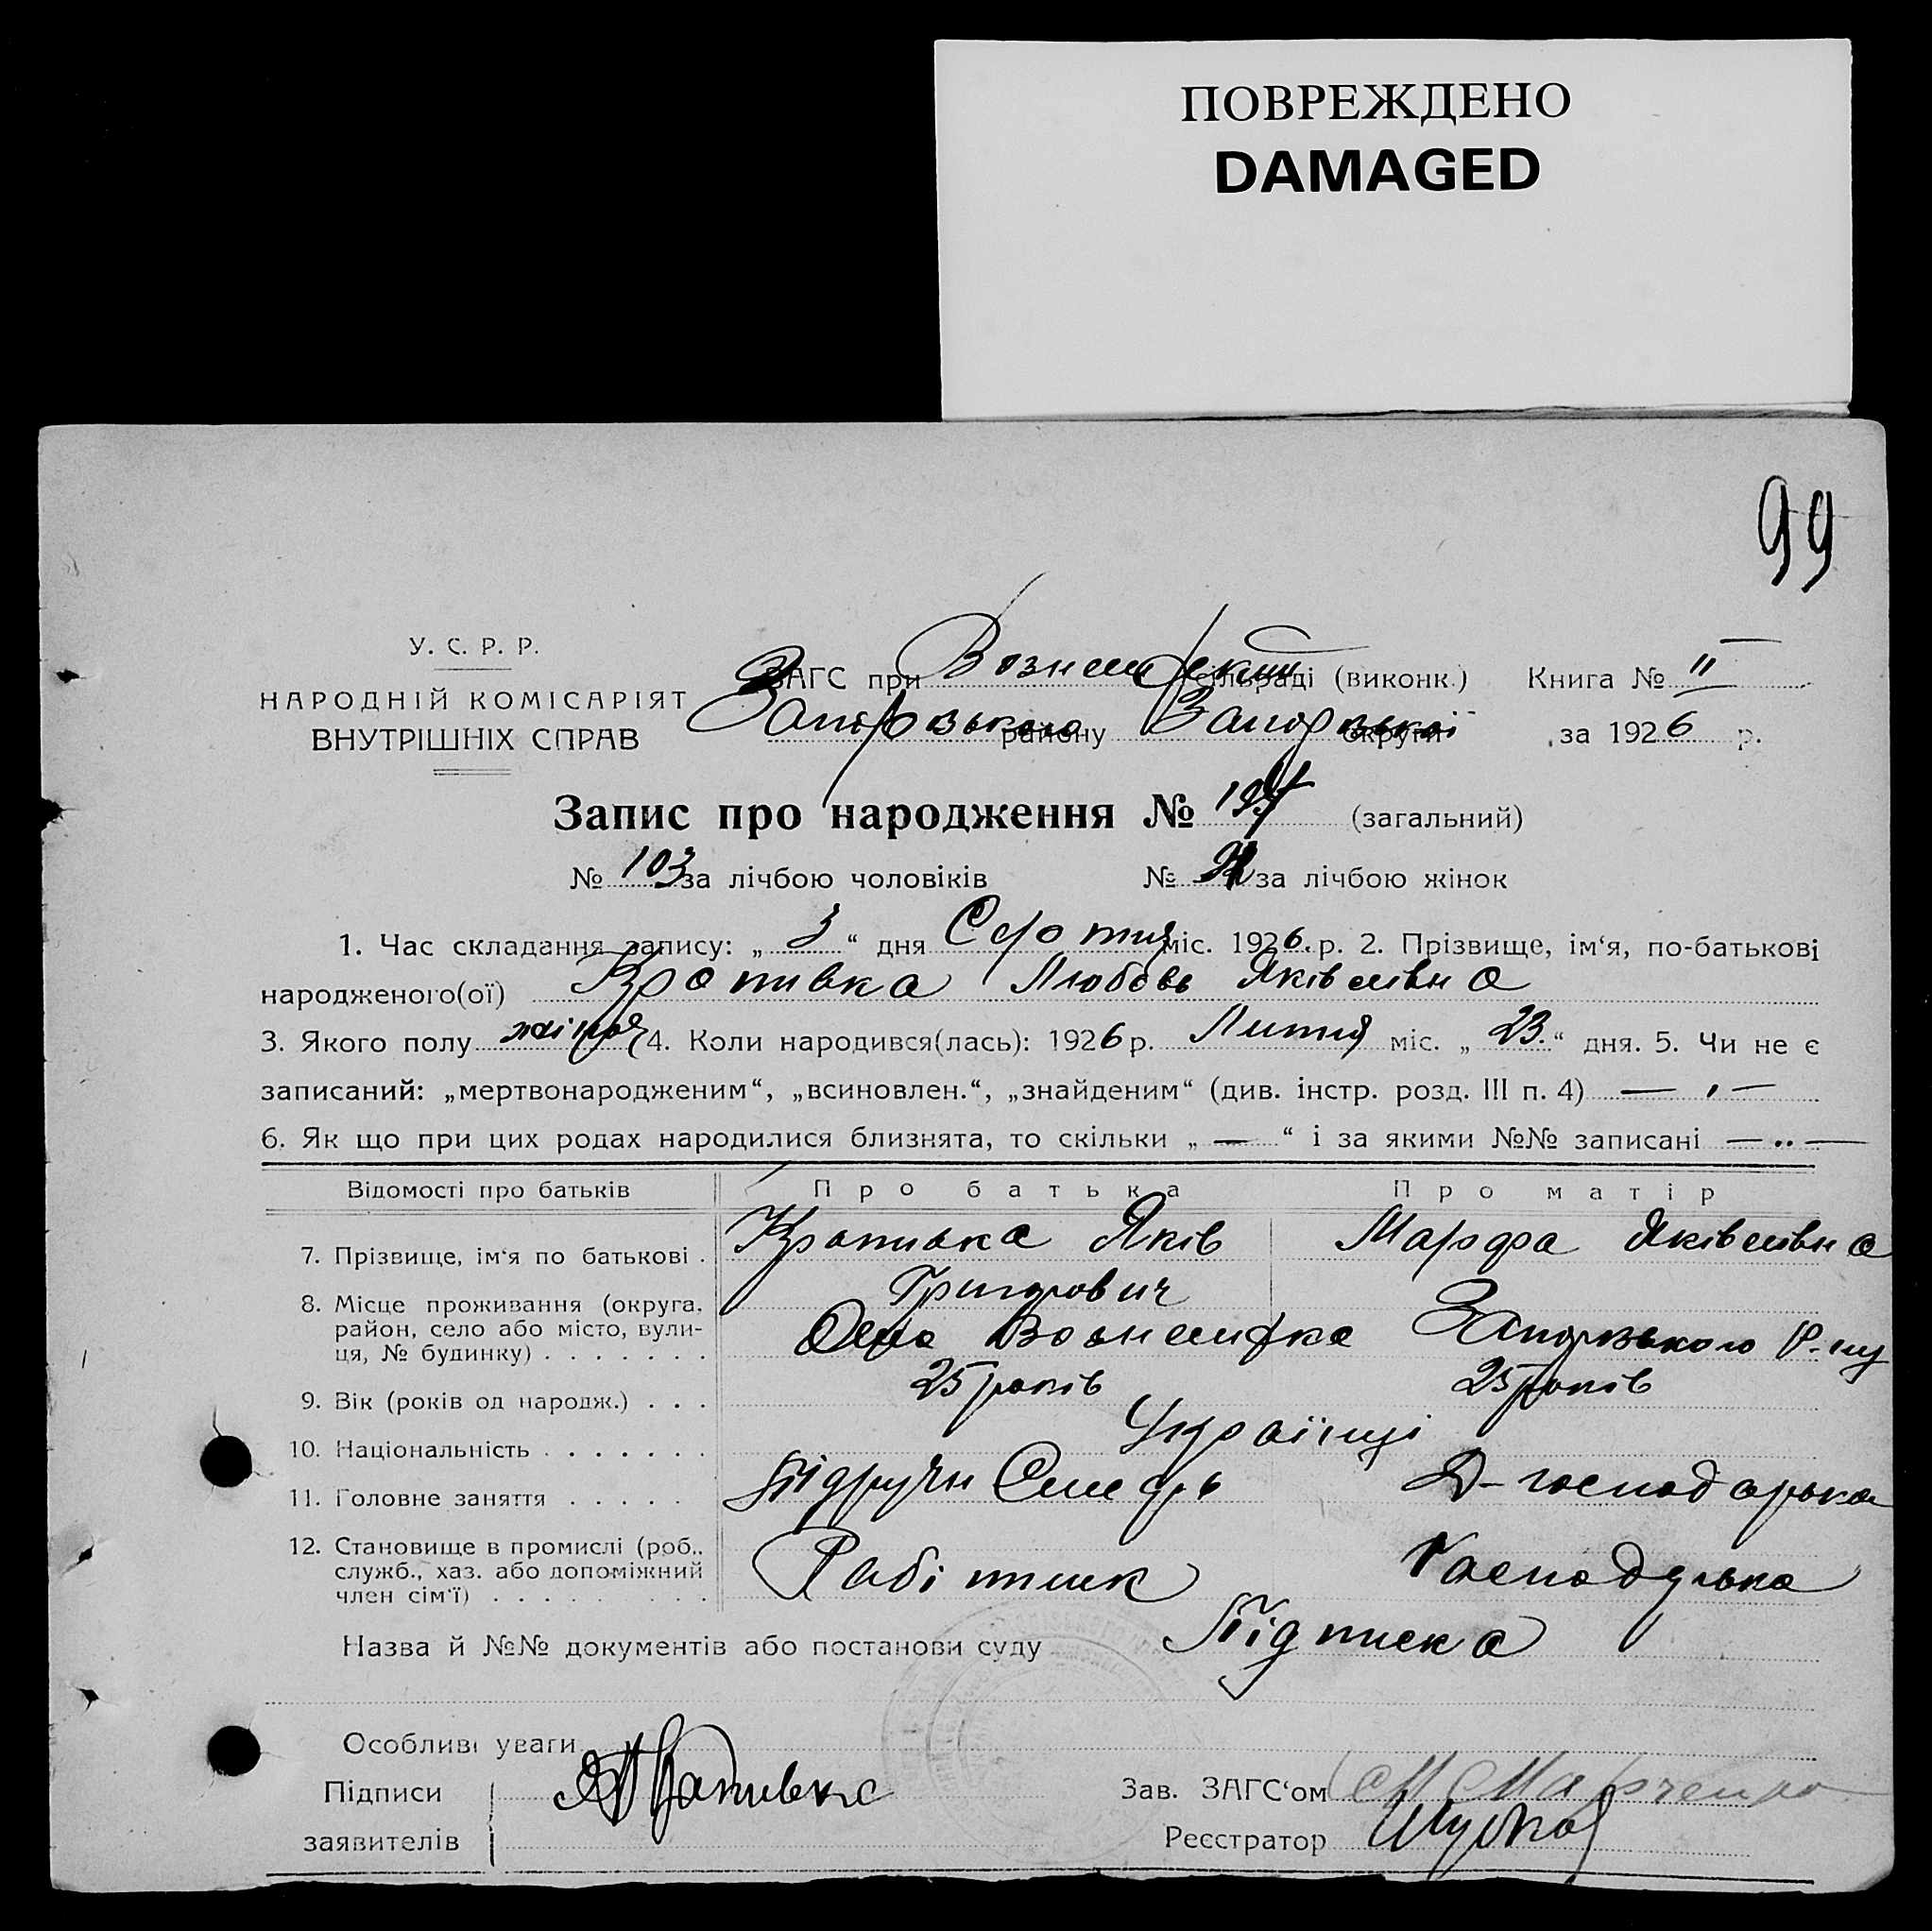 ПОВРЕЖДЕНО
DAMAGED
99
У. С. Р. Р.
НАРОДНІЙ КОМІСАРІЯТ
ВНУТРІШНІХ СПРАВ
ЗАГС при Вознесенській сільраді (виконк.) Книга № II
Запорізького району Запорізької округи за 1926 р.
Запис про народження № (загальний)
№ 103 за лічбою чоловіків № за лічбою жінок
1. Час складання запису: „ 3 “ дня міс. 1926 р. 2. Прізвище, ім‘я, по-батькові
народженого(ої) Кропивка Любовь Яківлівна
3. Якого полу жіноч 4. Коли народився(лась): 1926 р. Лютия міс. „ 23. “ дня. 5. Чи не є
записаний: „мертвонародженим“, „всиновлен.“, „знайденим“ (див. інстр. розд. III п. 4) — „ —
6. Як що при цих родах народилися близнята, то скільки „ — “ і за якими №№ записані — „ —
Відомості про батьків Про батька Про матір
7. Прізвище, ім‘я по батькові . Кропивка Яків Марфа Яківлівна
Григорович
8. Місце проживання (округа,
район, село або місто, вули-
ця, № будинку) . . . . . . . Село Вознесенка Запорізького Р-ну
9. Вік (років од народж.) . . . 25 років 25 років
10. Національність . . . . . . . Українці
11. Головне заняття . . . . . Підручн Слюсарь Д-господарька
12. Становище в промислі (роб.,
служб., хаз. або допоміжний
член сім‘ї) . . . . . . . . . Робітник Господарька
Назва й №№ документів або постанови суду Підписка
Особливі уваги
Підписи
заявителів Кропивка
Зав. ЗАГС‘ом Марченко
Реєстратор